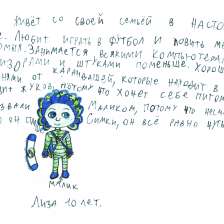 живёт со своей семьёй в насто
е. Любит играть в футбол и ловить м
омья. Занимается всякими компьютера
изорами и штуками поменьше. Хорош
от карандашей, которые находит в
жуков, потому что хочет себе пито
звали Маликом, потому что
он Симки, он всё равно
малик
Лиза 10 лет.